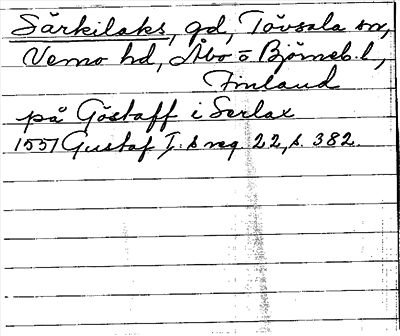 Särkilaks, gd, Tövsala sn,
Vemo hd, Åbo o Björneb. l,
Finland
på Göstaff i Serlax
1551 Gustaf I:s reg 22, s. 382.